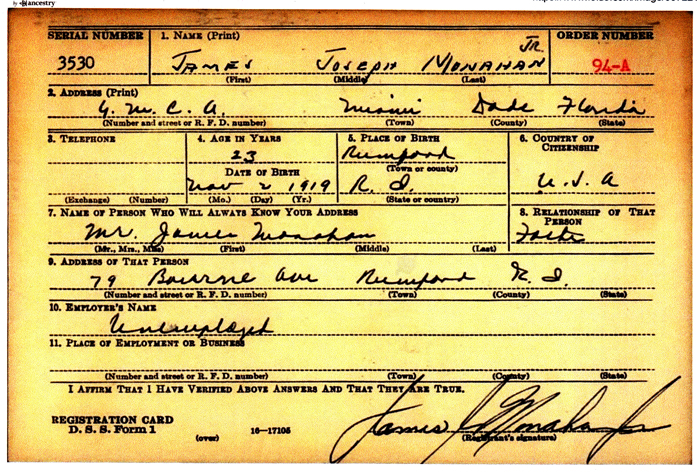 by ancestry
SERIAL NUMBER 1. NAME (Print) ORDER NUMBER
3530 JAMES JOSEPH MONAHAN JR. 94-A
(First) (Middle) (Last)
2. ADDRESS (Print)
Y. M. C. A. Miami Dade Florida
(Number and street or R. F. D. number) (Town) (County) (State)
3. TELEPHONE 4. AGE IN YEARS 5. PLACE OF BIRTH 6. COUNTRY OF CITIZENSHIP
23 Rumford
DATE OF BIRTH (Town or county)
Nov 2 1919 R. I. U. S. A
(Exchange) (Number) (Mo.) (Day) (Yr.) (State or country)
7. NAME OF PERSON WHO WILL ALWAYS KNOW YOUR ADDRESS 8. RELATIONSHIP OF THAT PERSON
Mr. James Monahan
(Mr., Mrs., Miss) (First) (Middle) (Last)
9. ADDRESS OF THAT PERSON
79 Bourne Ave Rumford R. I.
(Number and street or R. F. D. number) (Town) (County) (State)
10. EMPLOYER'S NAME
Unemployed
11. PLACE OF EMPLOYMENT OR BUSINESS
(Number and street or R. F. D. number) (Town) (County) (State)
I AFFIRM THAT I HAVE VERIFIED ABOVE ANSWERS AND THAT THEY ARE TRUE.
REGISTRATION CARD
D. S. S. Form 1 (over) 16—17105
James J Monahan Jr
(Registrant's signature)